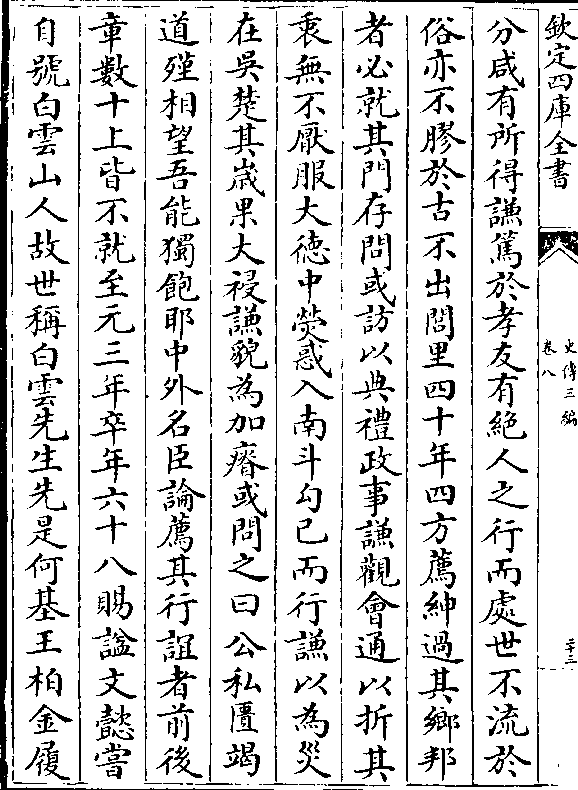 欽定四庫全書
史傳三編
卷八
二十三
分咸有所得謙篤於孝友有絶人之行而處世不流於
俗亦不膠於古不出閭里四十年四方薦紳過其鄉邦
者必就其門存問或訪以典禮政事謙觀會通以折其
衷無不厭服大徳中熒惑入南斗勾己而行謙以為災
在吳楚其嵗果大祲謙貌為加瘠或問之曰公私匱竭
道殣相望吾能獨飽耶中外名臣論薦其行誼者前後
章數十上皆不就至元三年卒年六十八賜諡文懿嘗
自號白雲山人故世稱白雲先生先是何基王柏金履